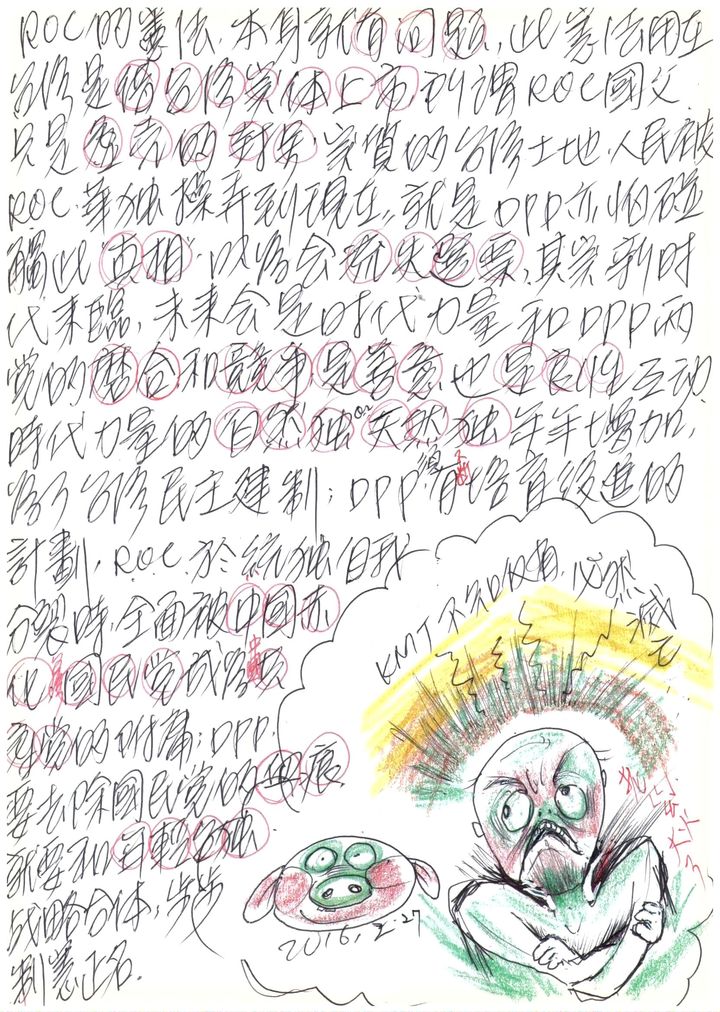 ROC的憲法,本身就有問題,此憲法用在
台灣是借台灣實体上市,所謂ROC國父
只是虛壳的封号,實質的台灣土地.人民被
ROC.華独操弄到現在,就是DPP亦怕碰
觸此"真相"以為会流失選票,其实新时
代来臨,未来会是时代力量和DPP兩
党的磨合和競争是善意也是良性互动
時代力量的自然独or天然独年年增加,
為了台灣民主建制;DPP 有培育後進的
計劃,ROC.於統独自我
分裂時,全面被中國赤
化國民党成為
的附庸;DPP.
要去除國民党的 痕
就要和年輕台独
战略合体,步步
制憲正名.
KMT不知 ,必然滅亡
2016.2.27